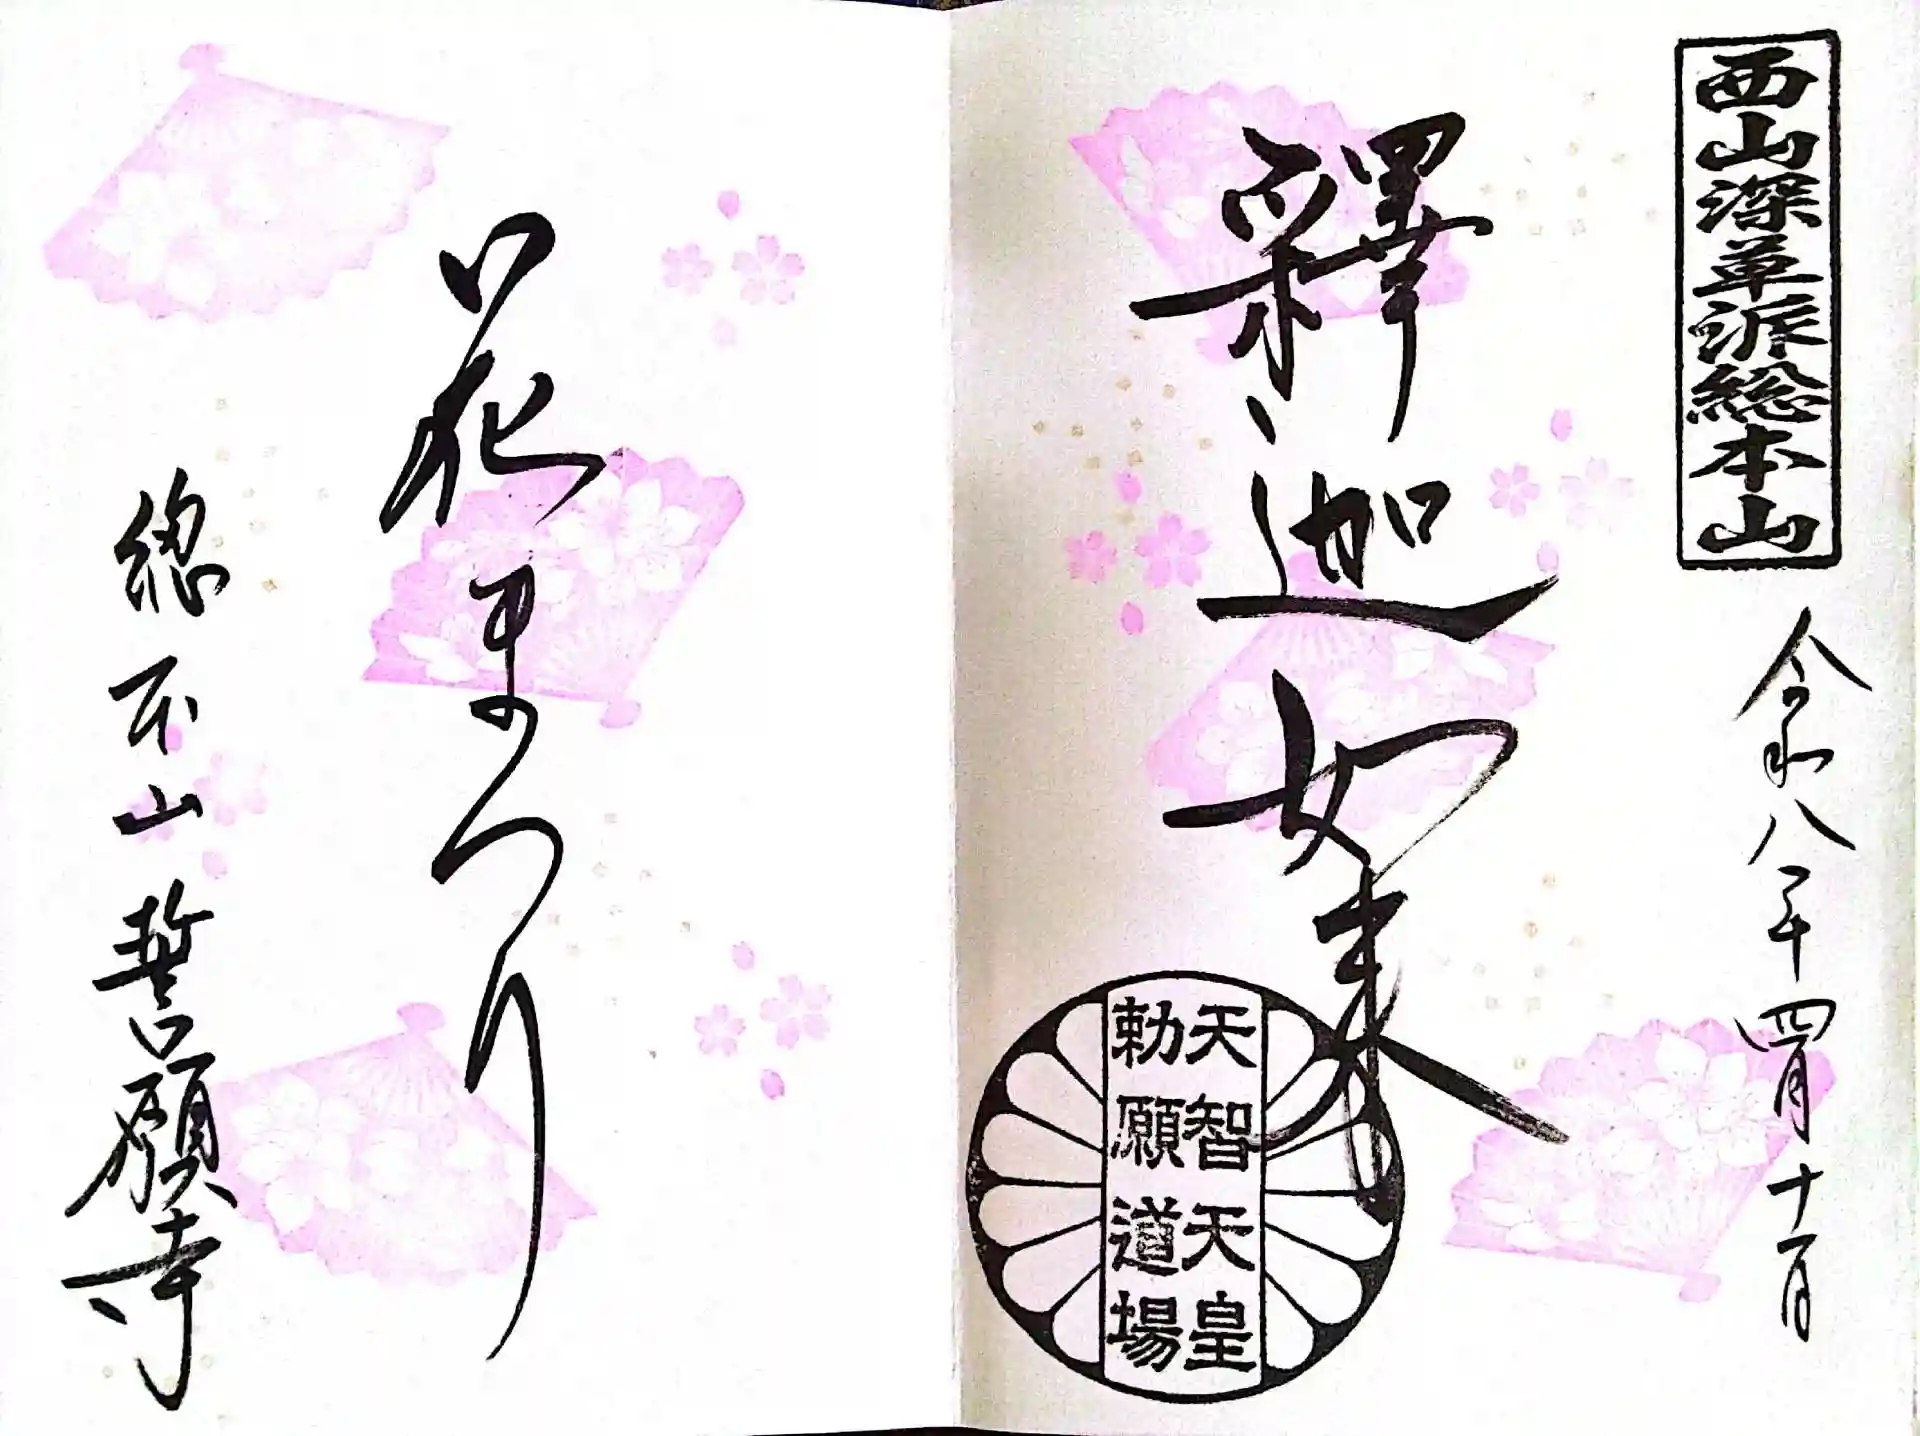 西山深草派総本山
令和八年四月十日
釋迦如来
天智天皇
勅願道場
花まつり
総本山誓願寺